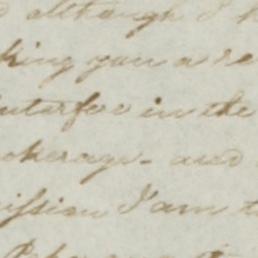 although I h
king you a re
interfere in the
okerage - and
mission I am t